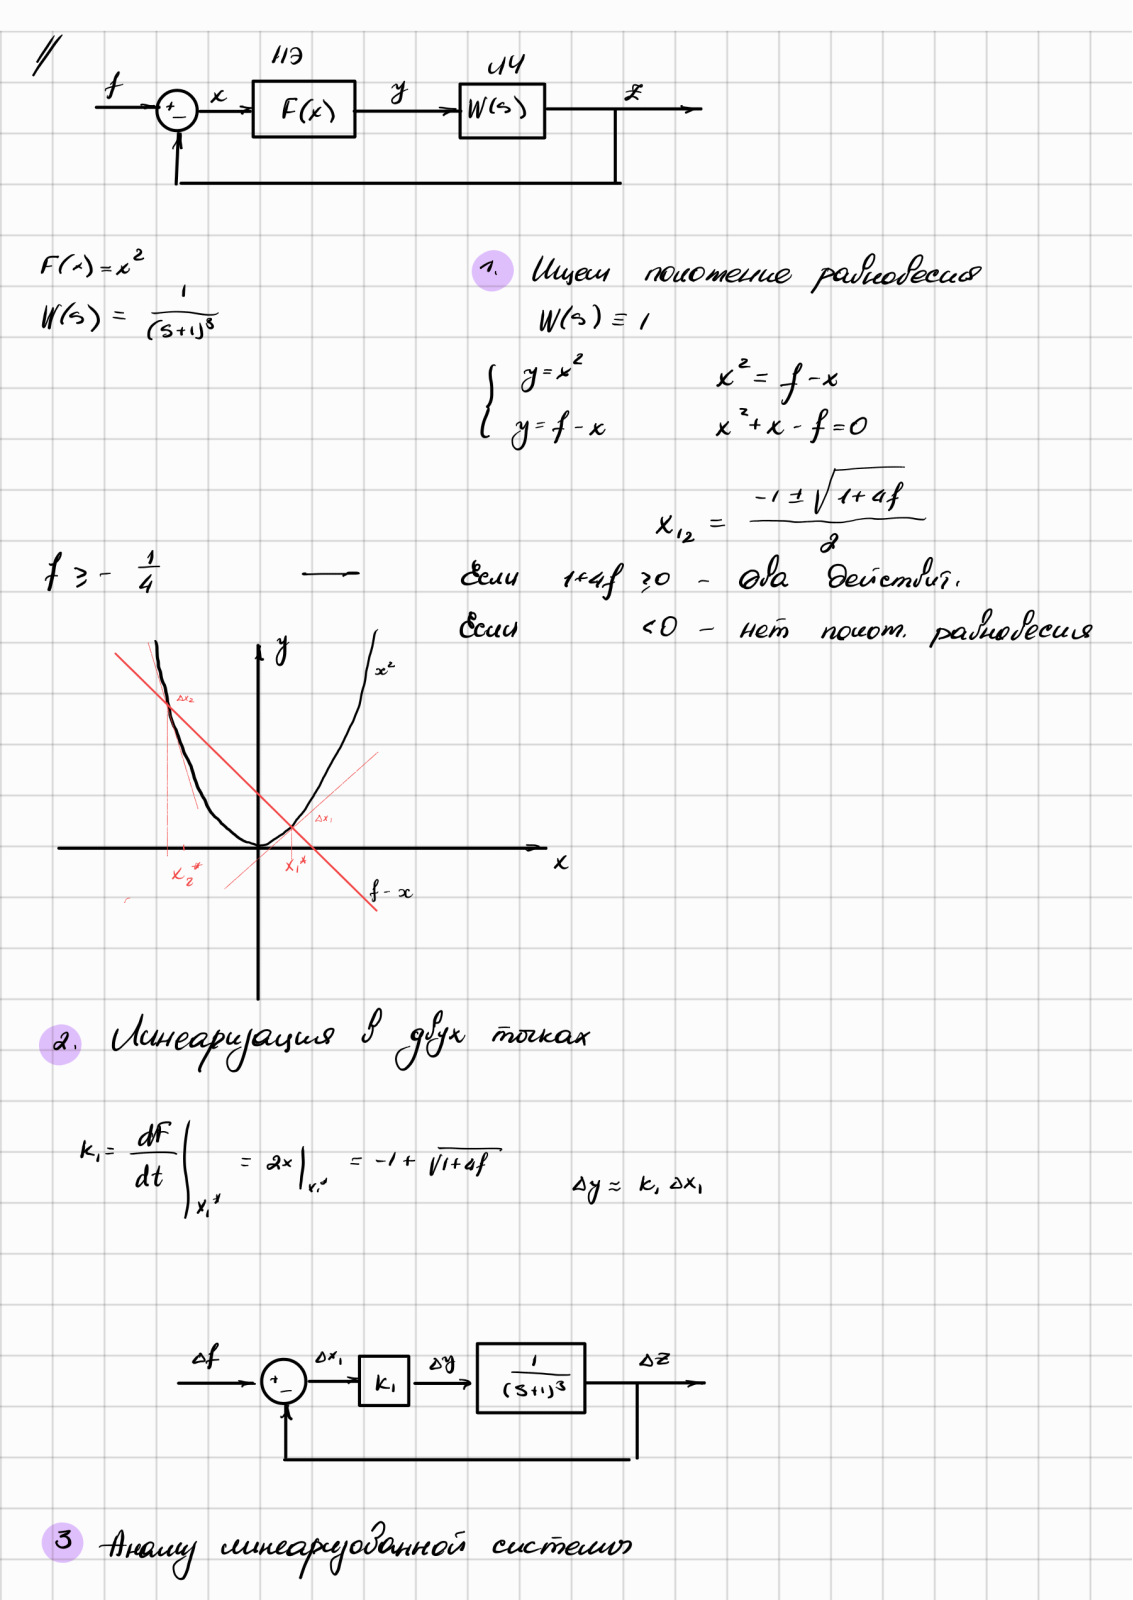 НЭ
ЛЧ
f + − x F(x) y W(s) z
F(x) = x²
W(s) = 1/(s+1)³
1. Ищем положение равновесия
W(s) ≡ 1
{ y = x²
y = f − x
x² = f − x
x² + x − f = 0
x₁₂ = (−1 ± √(1+4f))/2
f ≥ − 1/4 —
Если 1+4f ≥0 – два действит.
Если <0 – нет полож. равновесия
y
x²
Δx₂
Δx₁
x₂* x₁* x
f − x
2. Линеаризация в двух точках
k₁ = dF/dt |x₁* = 2x|x₁* = −1 + √(1+4f)
Δy ≈ k₁ Δx₁
Δf + − Δx₁ k₁ Δy 1/(s+1)³ Δz
3 Анализ линеаризованной системы